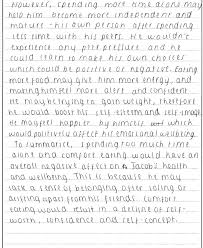 However, spending more time alone may
help him become more independent and
mature this own person after spending
less time with his peers. He wouldn't
experience any peer pressure and he
could learn to make his own choices
which could be positive or negative. Eating
more food may give him more energy, and
making himself more alert and confident
He may be trying to gain weight, therefore
he would boost his self esteem and self-image
He may feel happier by himself which
would positively affect his emotional wellbeing
To summarise, spending too much time
alone and comfort eating would have an
overall negative effect on Jacobs health
and wellbeing. This is because he may
lack a sense of belonging after
apart from his friends. Comfort
eating would result in a decline of self-
worth, confidence and self-concept.